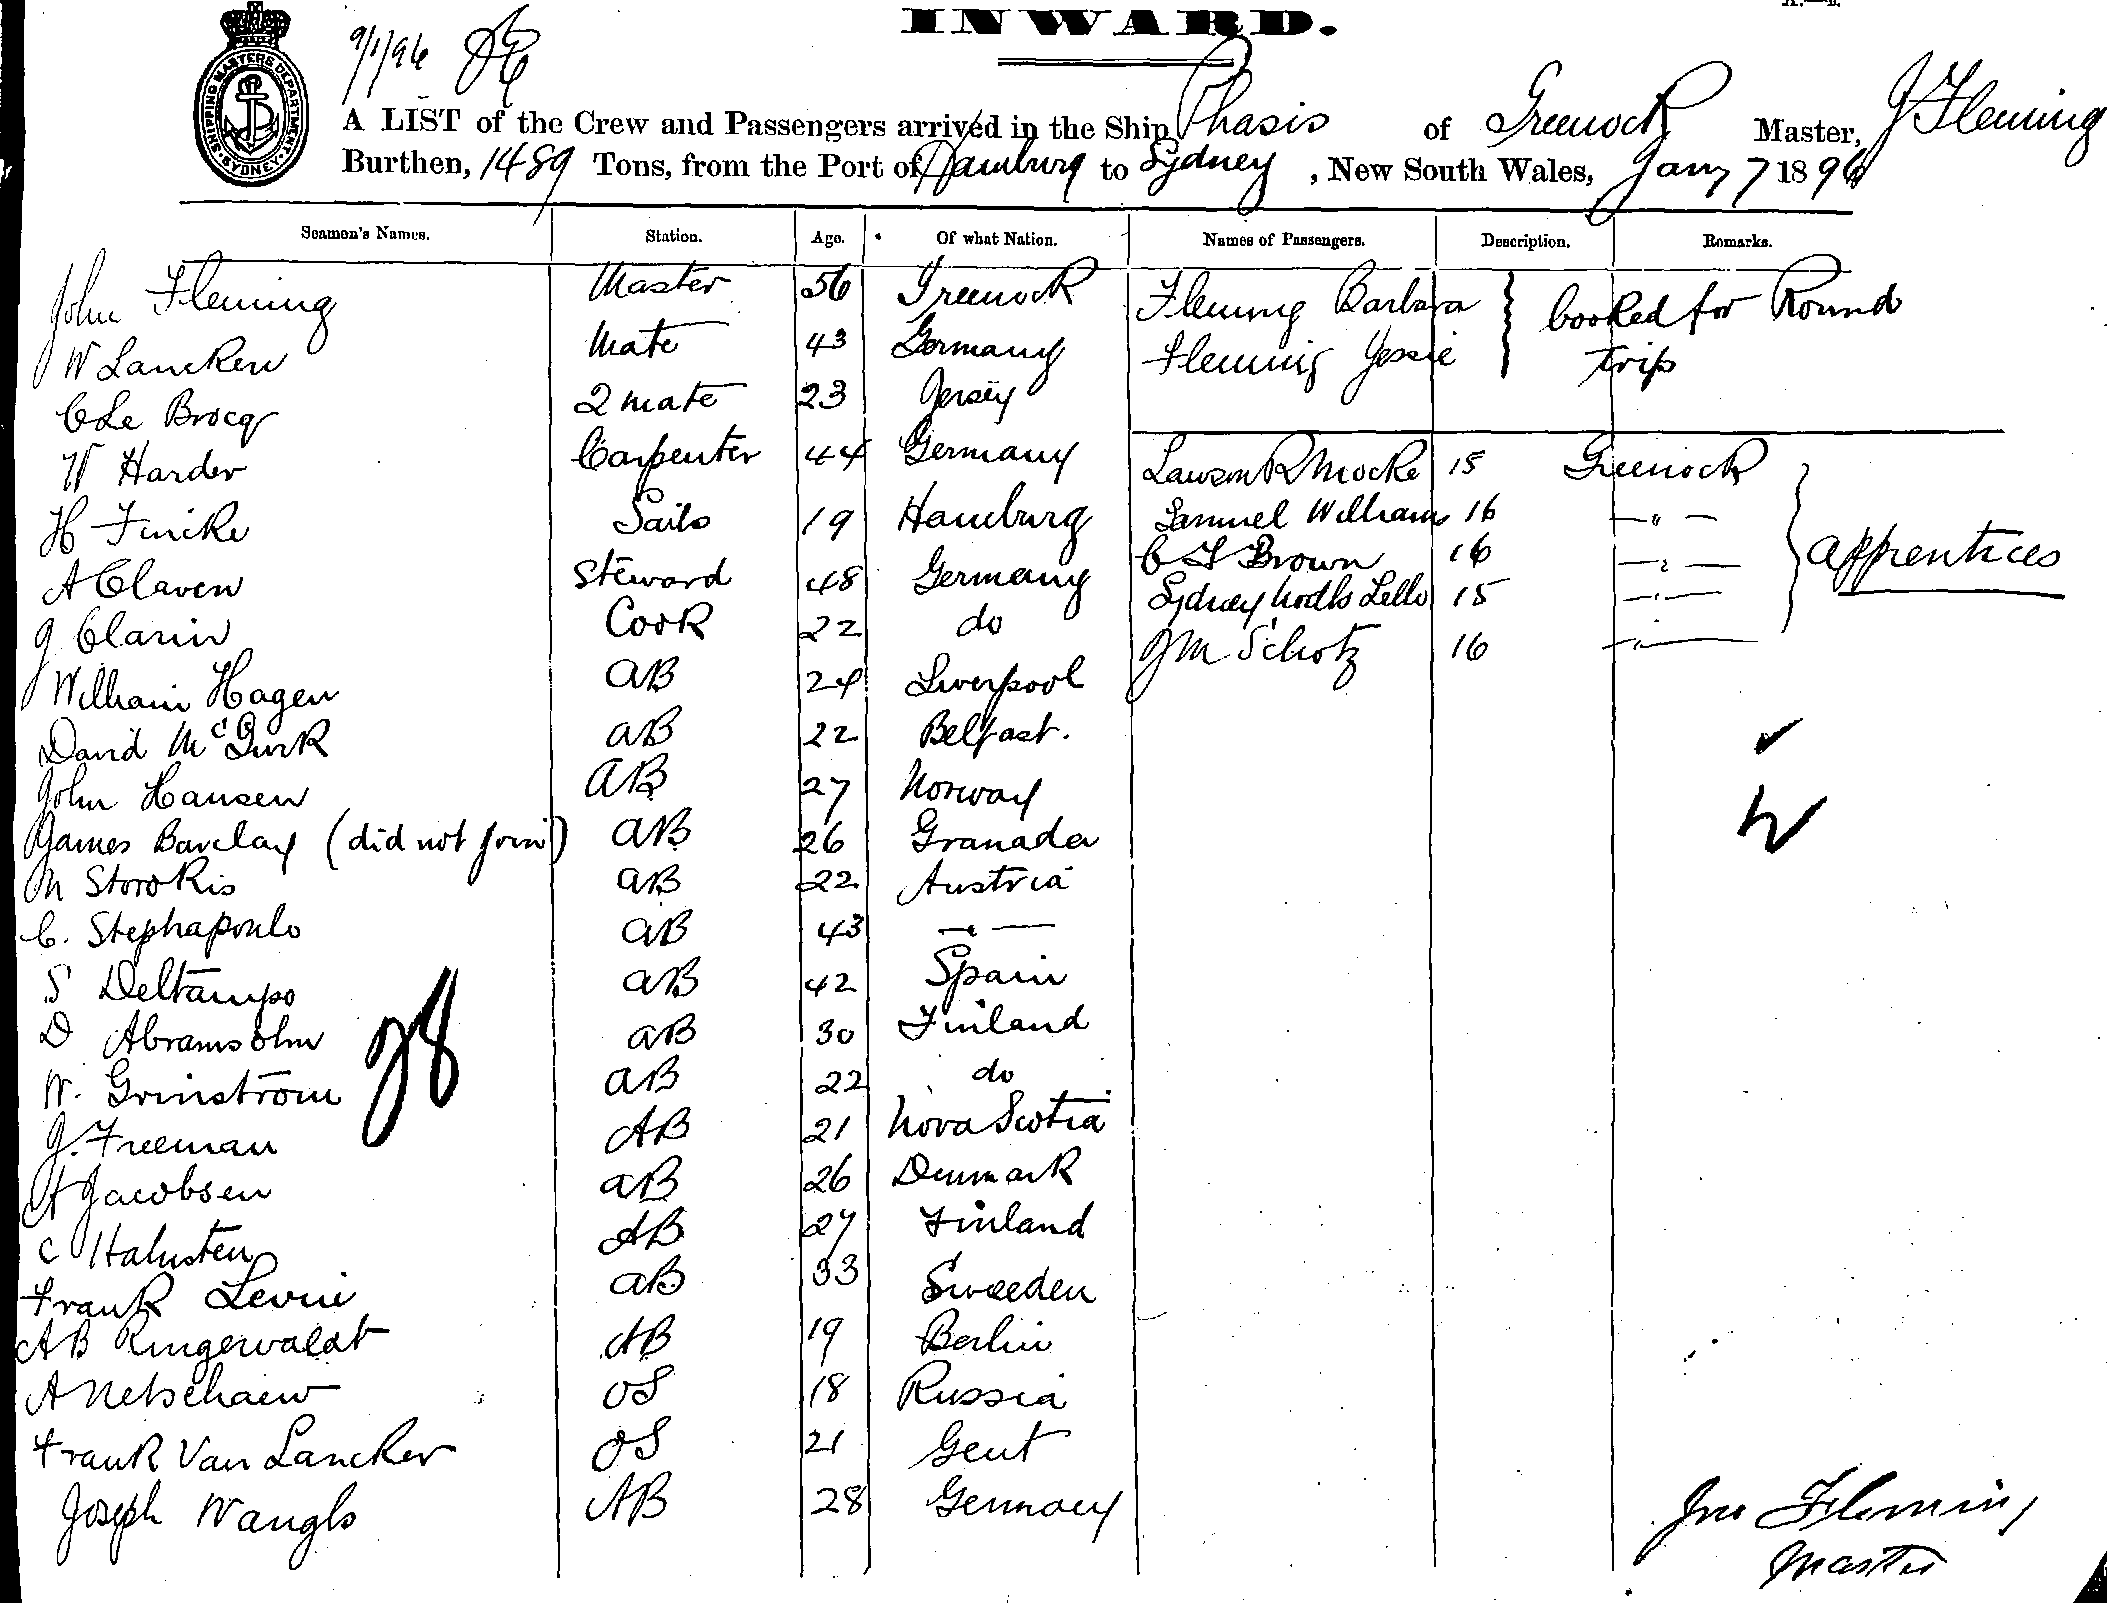 INWARD.
9/1/96
A LIST of the Crew and Passengers arrived in the Ship Phasis of Greenock Master, J Fleming
Burthen, 1489 Tons, from the Port of Hamburg to Sydney, New South Wales, Jany 7 1896
SHIPPING MASTERS DEPARTMENT SYDNEY
Seamen's Names. Station. Age. Of what Nation. Names of Passengers. Description. Remarks.
John Fleming Master 56 Greenock Fleming Barbara } booked for Round
W Lancken Mate 43 Germany Fleming Jessie trip
C Le Brocq 2 mate 23 Jersey
W Harder Carpenter 44 Germany Lawson R Mocke 15 Greenock
H Fincke Sails 19 Hamburg Samuel Williams 16 — " —
A Claven Steward 48 Germany C F Brown 16 — " — } apprentices
J Clarin Cook 22 do Sydney Lello 15 — " —
William Hagen AB 24 Liverpool J M Schotz 16 — " —
David McGurk AB 22 Belfast.
John Hansen AB 27 Norway
James Barclay (did not join) AB 26 Granada
M Storokis AB 22 Austria
C. Stephapoulo AB 43 — " —
S Deltampo AB 42 Spain
D Abramsohn AB 30 Finland
W. Grinstrom AB 22 do
28
J. Freeman AB 21 Nova Scotia
A Jacobsen AB 26 Denmark
C Halusten AB 27 Finland
Frank Levin AB 33 Sweeden
AB Ringerwaldt AB 19 Berlin
A Netschaew OS 18 Russia
Frank Van Lancker OS 21 Gent
Joseph Wangls AB 28 Germany
Jno Fleming
Master